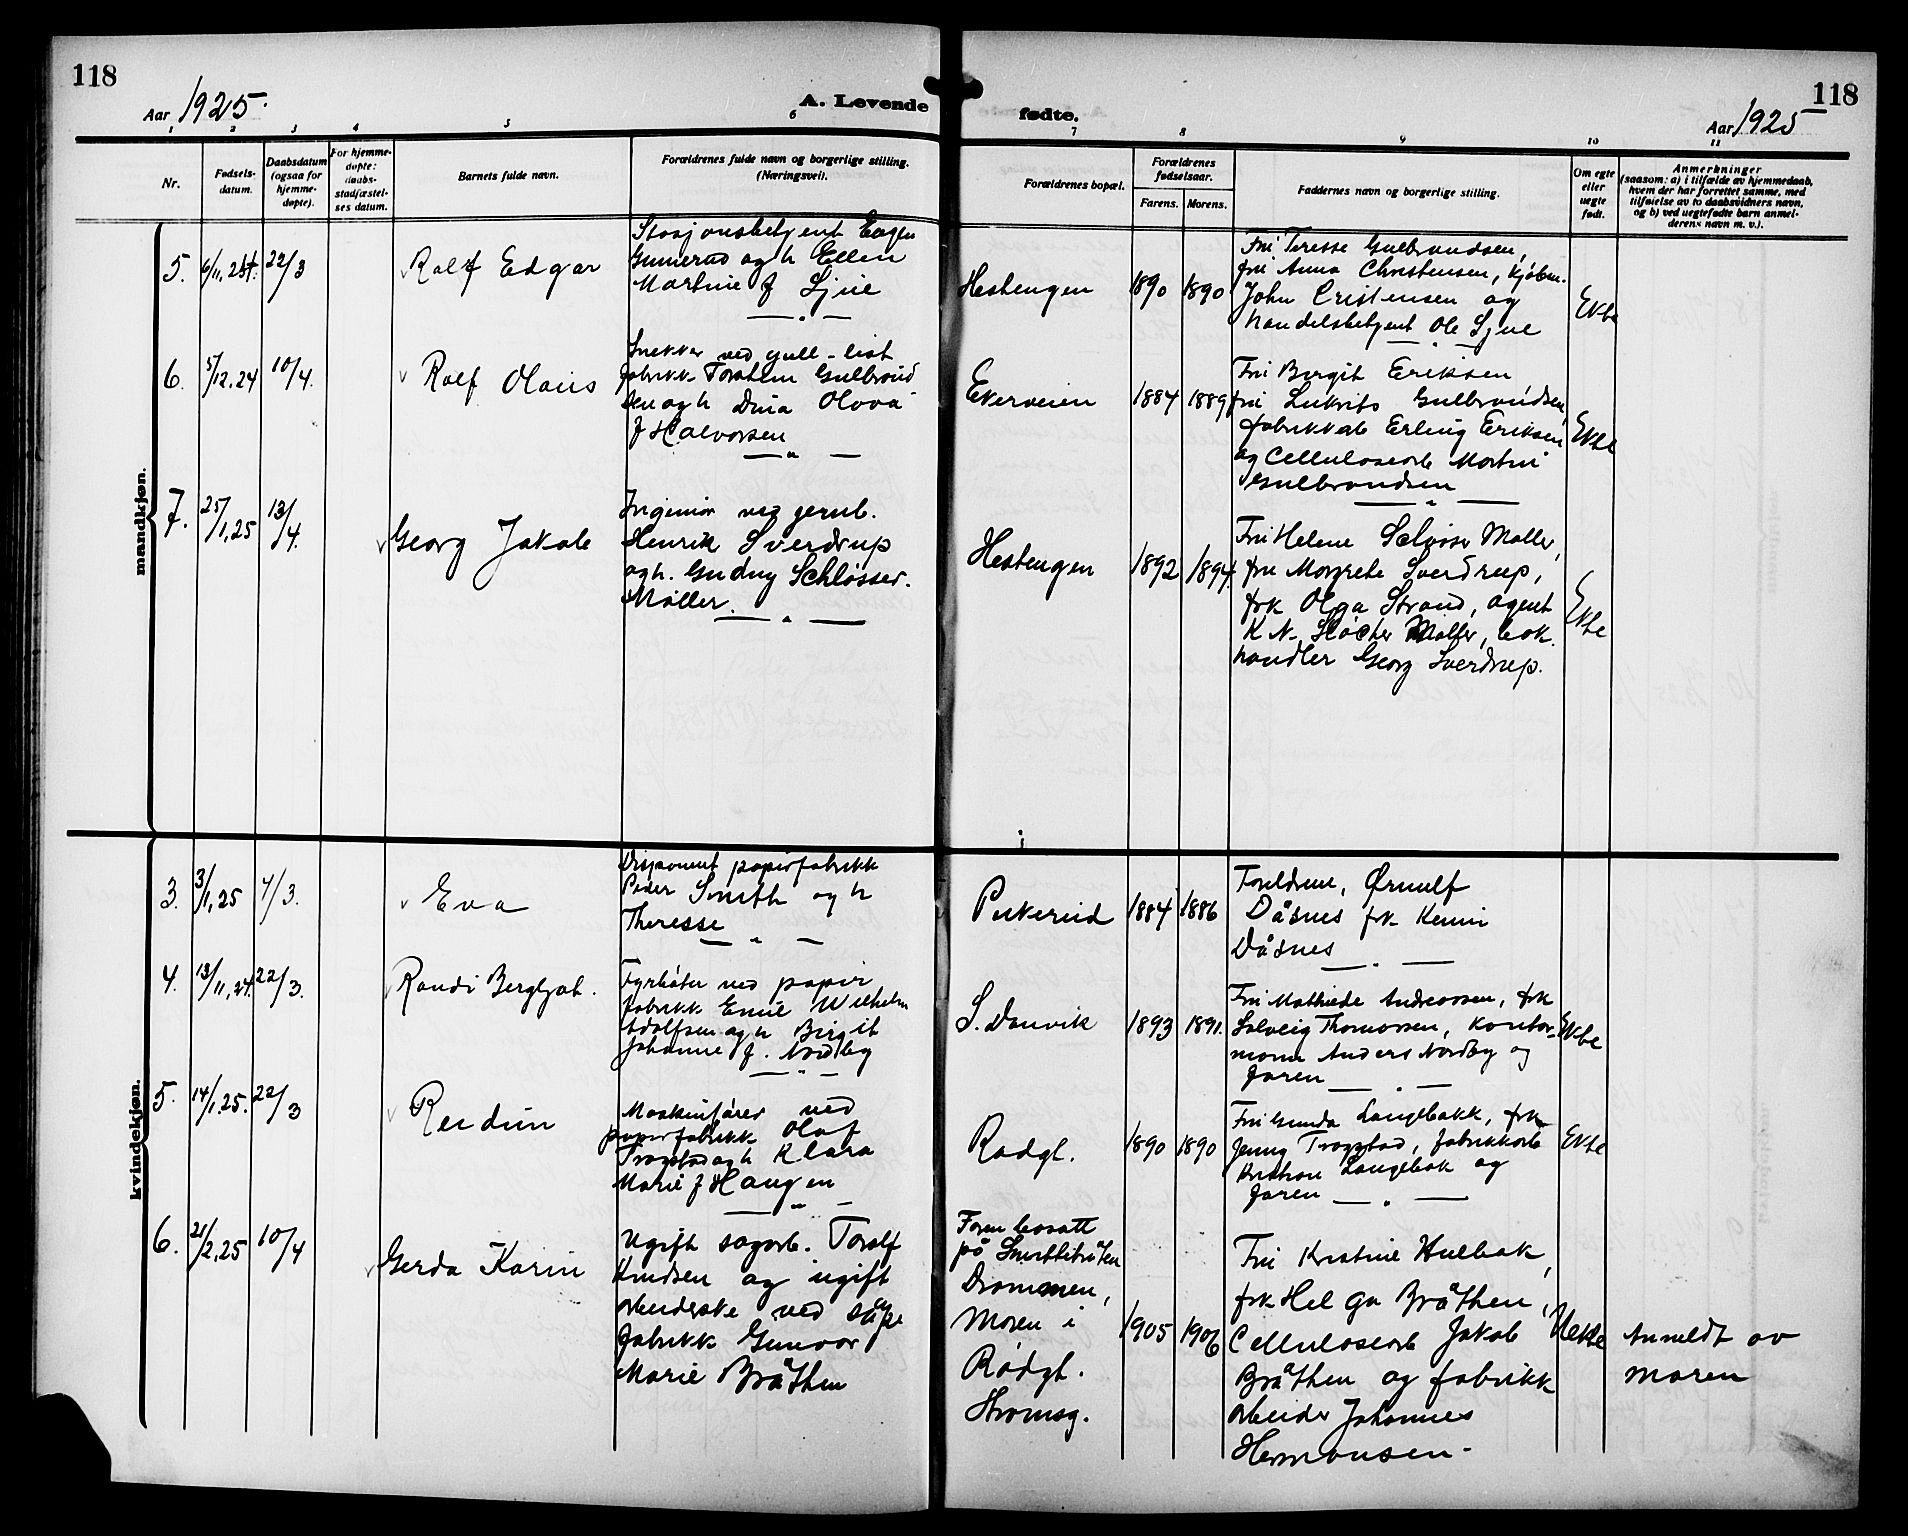 118
Aar 1925.
A. Levende
fødte.
118
Aar 1925
1 2 3 4 5 6 7 8 9 10 11
Nr.
Fødsels-
datum.
Daabsdatum
(ogsaa for
hjemme-
døpte).
For hjemme-
døpte:
daabs-
stadfæstel-
ses datum.
Barnets fulde navn.
Forældrenes fulde navn og borgerlige stilling.
(Næringsvei).
Forældrenes bopæl.
Forældrenes
fødselsaar.
Farens. Morens.
Faddernes navn og borgerlige stilling.
Om egte
eller
uegte
født.
Anmerkninger
(saasom: a) i tilfælde av hjemmedaab,
hvem der har forrettet samme, med
tilføielse av to daabsvidners navn,
og b) ved uegtefødte barn anmel-
derens navn m. v.).
mandkjøn.
5. 6/11.24. 22/3
Ralf Edgar
Stasjonsbetjent
Gunnerud og h Ellen
Martine f Ljue
Hestengen
1890 1890
Fru Teresse Gulbrandsen,
fru Anna Christensen, Kjøbm.
John Cristensen og
handelsbetjent Ole Ljue
Ekte
6. 5/12.24 10/4.
Ralf Olaus
Snekker ved gull-list
fabrikk Torsten Gulbrand
sen og h Dina Olova
f Halvorsen
Ekerveien
1884 1889
Fru Borgit Eriksen
fru Gulbrandsen,
fabrikkarb Erling Eriksen
og Cellulosearb Martin
Gulbrandsen
Ekte
7. 25/1.25 13/4.
Georg Jakob
Ingeniør ved jernb.
Henrik Sverdrup
og h. Gudny Schlösser.
Møller.
Hestengen
1892 1894.
Fru Helene Møller,
fru Margrete Sverdrup,
frk Olga Strand, agent
K N. Møller, bok
handler Georg Sverdrup.
Ekte
kvindekjøn.
3. 3/1.25 7/3.
Eva
Disponent papirfabrikk
Peder Smith og h
Theresse
Pukerud
1884 1886
Foreldrene, Ørnulf
Dåsnes frk
Dåsnes
4. 13/11.24. 22/3.
Randi Bergljot.
Fyrbøter ved papir
fabrikk Emil Wilhelm
Adolfsen og h Birgit
Johanne f. Nordby
S. Danvik
1893 1891.
Fru Mathilde Andreassen, frk
Solveig Thomassen, Kontor-
mann Anders Nordby og
faren
Ekte
5. 14/1.25. 22/3
Reidun
Maskinfører ved
papirfabrikk Olaf
Trøgstad og h Klara
Marie f Haugen
Rødgt.
1890 1890
Fru Gunda Langebakk, frk
Jenny Trøgstad, fabrikkarb
Kristian Langebak og
faren
Ekte
6. 21/2.25 10/4
Gerda Karin
Ugift sagarb. Toralf
Knudsen og ugift
arbeiderske ved såpe
fabrikk Gunvor
Marie Bråthen
Faren bosatt
på Smithebråten
Drammen,
Moren i
Rødgt.
Strømsg.
1905 1906
Fru Kristine Hulbak,
frk Helga Bråthen,
Cellulosearb Jakob
Bråthen og fabrikk
arbeider Johannes
Hermansen-
Uekte
Anmeldt av
moren